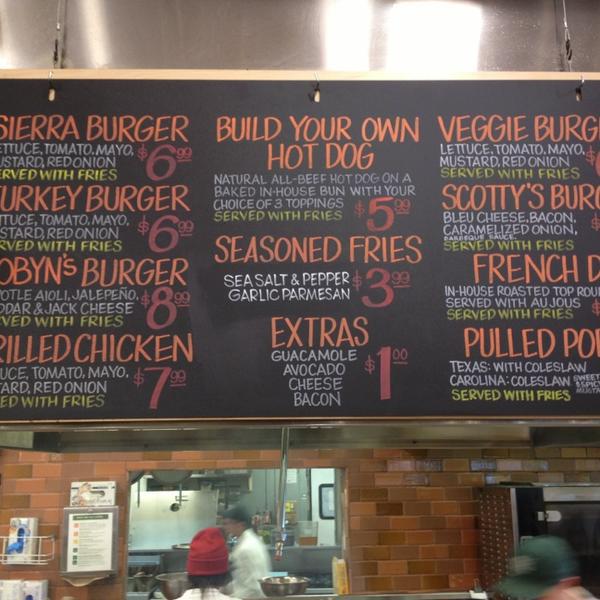 SIERRA BURGER
LETTUCE, TOMATO, MAYO,
MUSTARD, RED ONION
SERVED WITH FRIES
$6.99
TURKEY BURGER
LETTUCE, TOMATO, MAYO,
MUSTARD, RED ONION
SERVED WITH FRIES
$6.99
ROBYN'S BURGER
CHIPOTLE AIOLI, JALEPEÑO,
CHEDDAR & JACK CHEESE
SERVED WITH FRIES
$8.99
GRILLED CHICKEN
LETTUCE, TOMATO, MAYO,
MUSTARD, RED ONION
SERVED WITH FRIES
$7.99
BUILD YOUR OWN
HOT DOG
NATURAL ALL-BEEF HOT DOG ON A
BAKED IN-HOUSE BUN WITH YOUR
CHOICE OF 3 TOPPINGS
SERVED WITH FRIES
$5.99
SEASONED FRIES
SEA SALT & PEPPER
GARLIC PARMESAN
$3.99
EXTRAS
GUACAMOLE
AVOCADO
CHEESE
BACON
$1.00
VEGGIE BURG
LETTUCE, TOMATO, MAYO,
MUSTARD, RED ONION
SERVED WITH FRIES
SCOTTY'S BURG
BLEU CHEESE, BACON,
CARAMELIZED ONION,
BARBEQUE SAUCE.
SERVED WITH FRIES
FRENCH D
IN-HOUSE ROASTED TOP ROU
SERVED WITH AU JOUS
SERVED WITH FRIES
PULLED PO
TEXAS: WITH COLESLAW
CAROLINA: COLESLAW SWEET
& SPICY
MUSTA
SERVED WITH FRIES